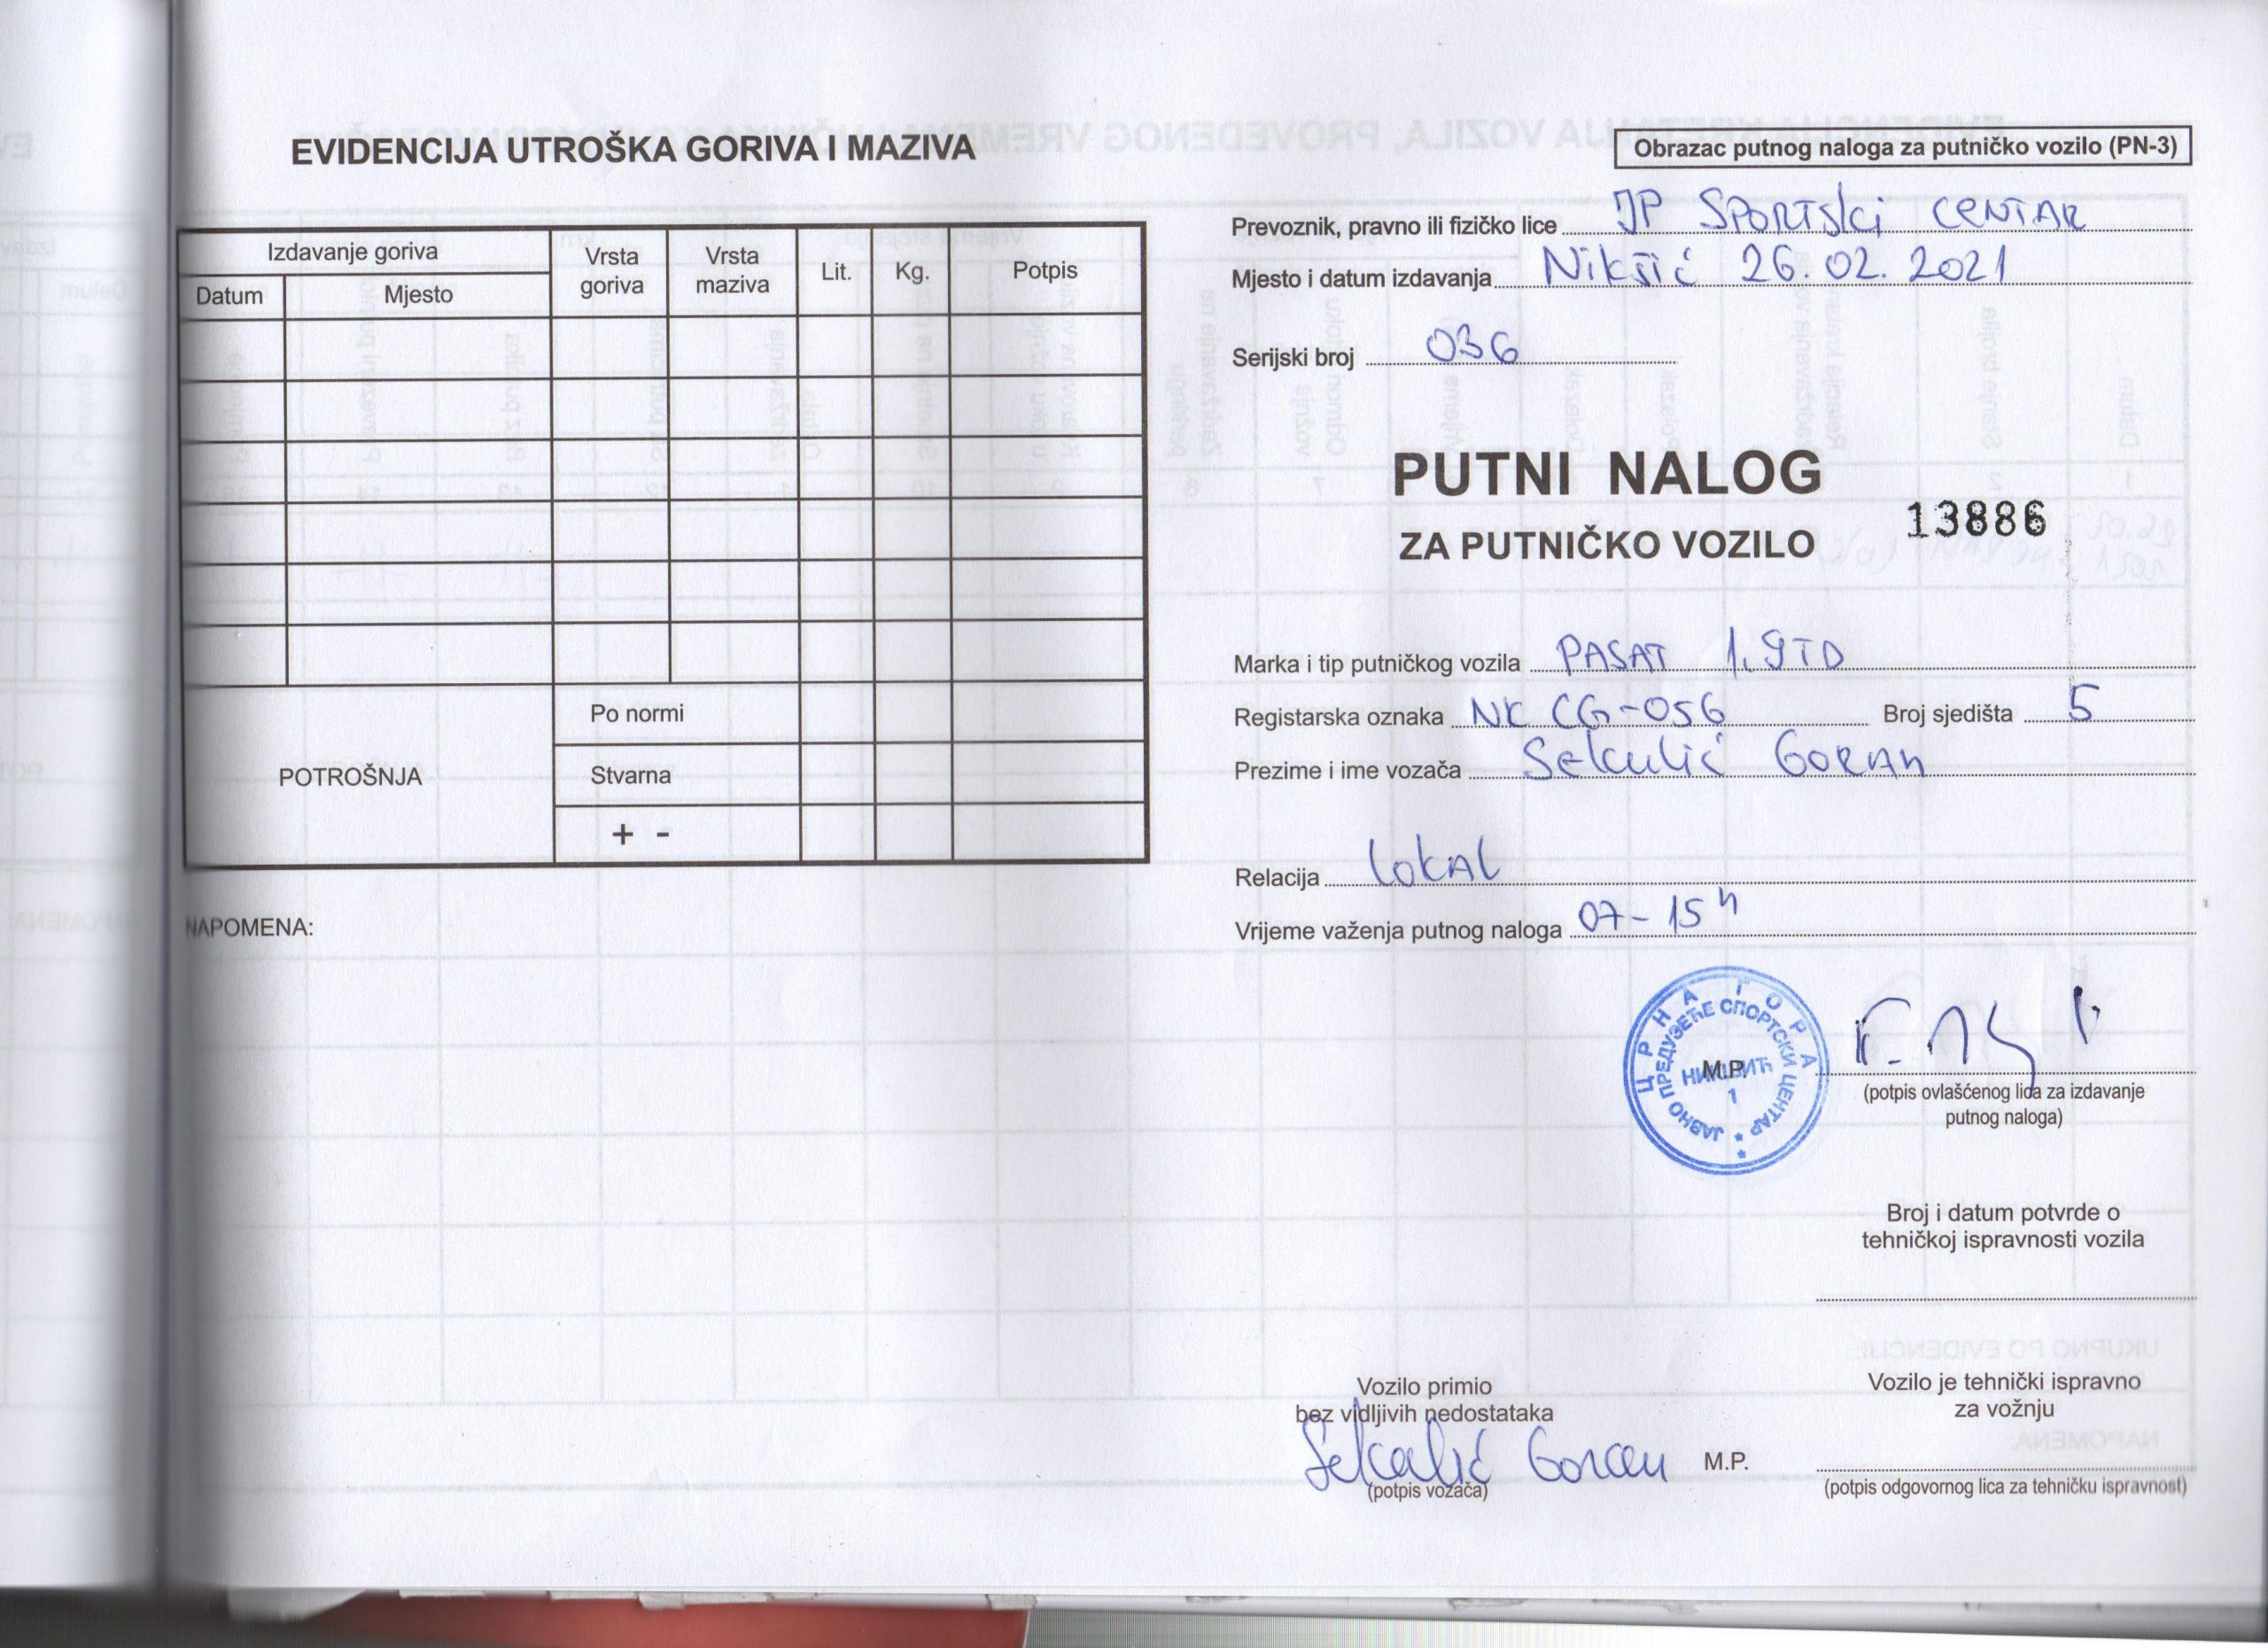 EVIDENCIJA UTROŠKA GORIVA I MAZIVA
Izdavanje goriva
Datum
Mjesto
Vrsta goriva
Vrsta maziva
Lit.
Kg.
Potpis
POTROŠNJA
Po normi
Stvarna
+ -
NAPOMENA:
Obrazac putnog naloga za putničko vozilo (PN-3)
Prevoznik, pravno ili fizičko lice JP SPORTSKI CENTAR
Mjesto i datum izdavanja Nikšić 26.02.2021
Serijski broj 036
PUTNI NALOG
13886
ZA PUTNIČKO VOZILO
Marka i tip putničkog vozila PASAT 1.9TD
Registarska oznaka NK CG-056 Broj sjedišta 5
Prezime i ime vozača Sekulić Goran
Relacija lokal
Vrijeme važenja putnog naloga 07-15 h
ЦРНА ГОРА
ЈАВНО ПРЕДУЗЕЋЕ СПОРТСКИ ЦЕНТАР
НИКШИЋ
1
M.P.
(potpis ovlašćenog lica za izdavanje
putnog naloga)
Broj i datum potvrde o
tehničkoj ispravnosti vozila
Vozilo primio
bez vidljivih nedostataka
Sekulić Goran
(potpis vozača)
M.P.
Vozilo je tehnički ispravno
za vožnju
(potpis odgovornog lica za tehničku ispravnost)